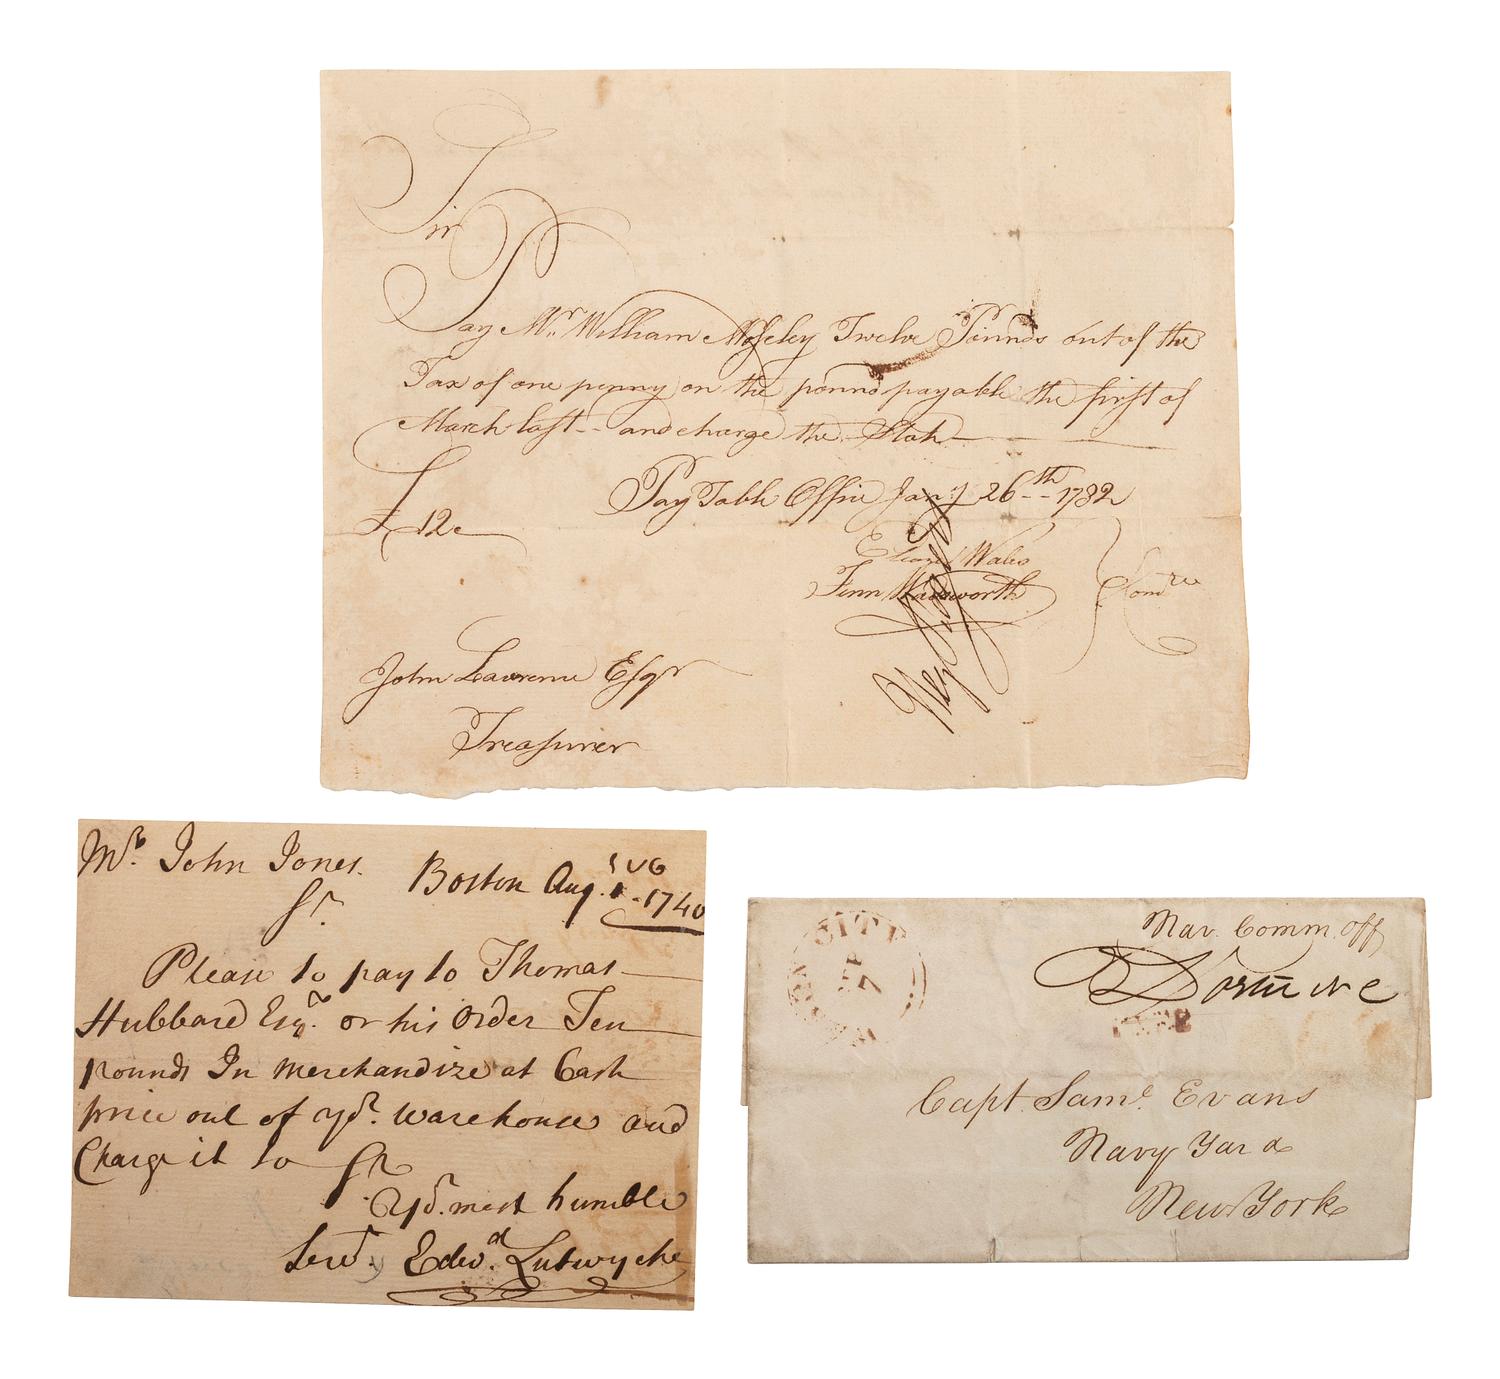 Sir
Pay Mr. William Moseley Twelve Pounds out of the
Tax of one penny on the pound payable the first of
March last -- and charge the State
Pay Table Office Jany 26th 1782
£12
Eleazr Wales
Fenn Wadsworth
Comtee
John Lawrence Esqr
Treasurer
Mr. John Jones.
Boston Aug. 1. 1740
Sr.
Please to pay to Thomas
Hubbard Esqr. or his Order Ten
pounds In Merchandize at Cash
price out of yor. Warehouse and
Charge it to Sr
Yor. most humble
Servt. Edwd. Lutwyche
CITY
7
Nav. Comm. Off
FREE
Capt. Saml. Evans
Navy Yard
New York